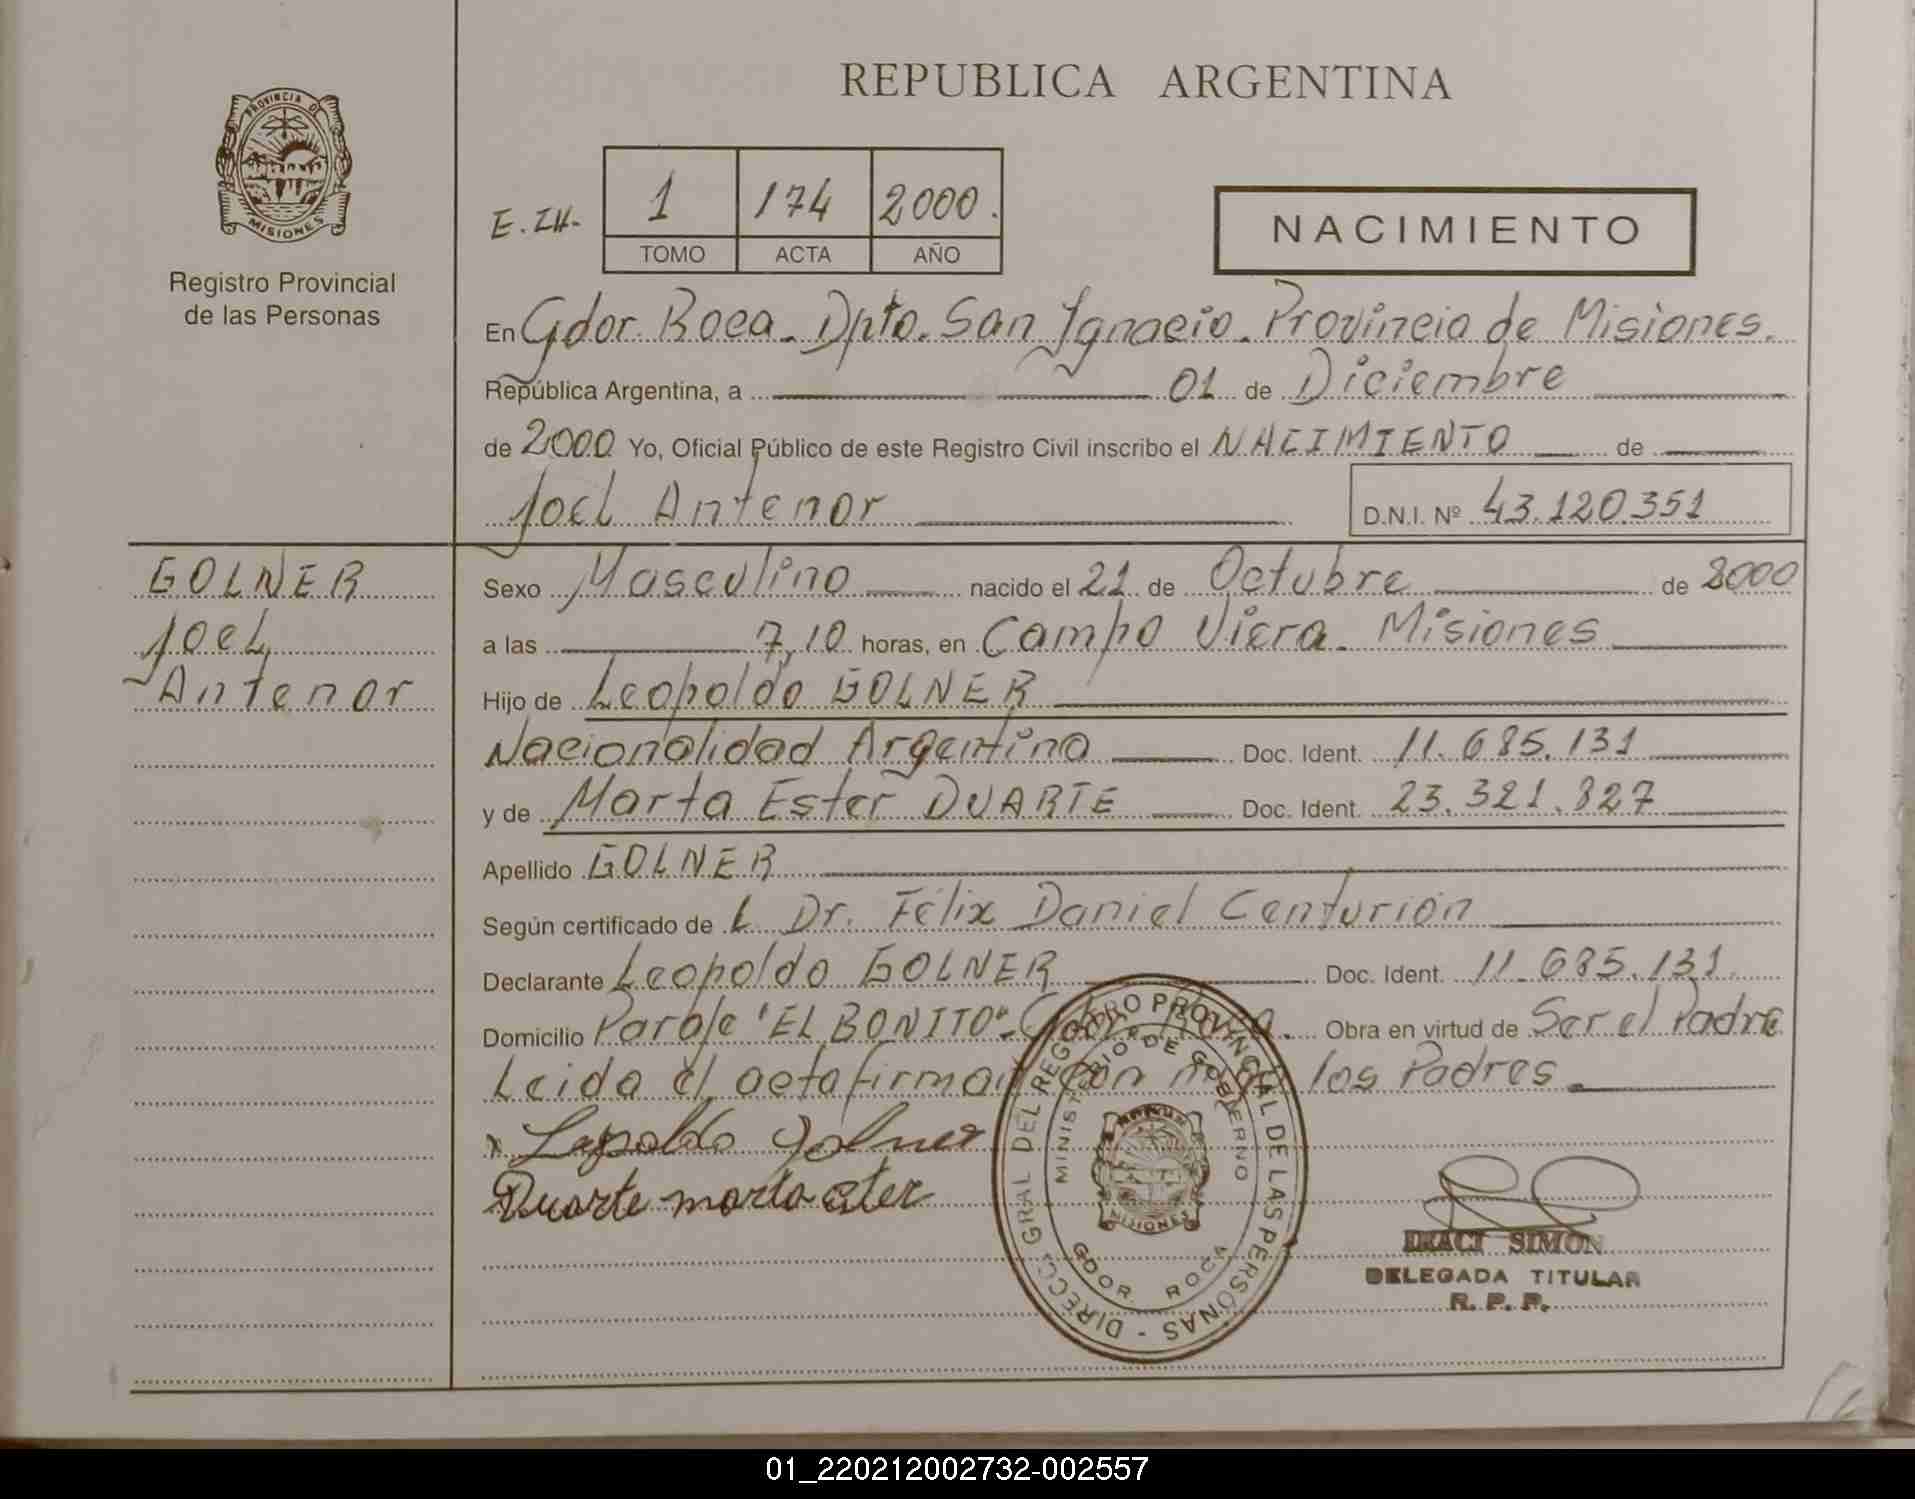 REPUBLICA ARGENTINA
PROVINCIA D
MISIONES
Registro Provincial
de las Personas
E. IH.
1 174 2000.
TOMO ACTA AÑO
NACIMIENTO
En Gdor. Roca. Dpto. San Ignacio. Provincia de Misiones.
República Argentina, a 01 de Diciembre
de 2000 Yo, Oficial Público de este Registro Civil inscribo el NACIMIENTO de
Joel Antenor D.N.I. Nº 43.120.351
GOLNER
Joel
Antenor
Sexo Masculino nacido el 21 de Octubre de 2000
a las 7,10 horas, en Campo Viera. Misiones
Hijo de Leopoldo GOLNER
Nacionalidad Argentina Doc. Ident. 11.685.131
y de Marta Ester DUARTE Doc. Ident. 23.321.827
Apellido GOLNER
Según certificado de L Dr. Félix Daniel Centurión
Declarante Leopoldo GOLNER Doc. Ident. 11.685.131
Domicilio Paraje "EL BONITO" Obra en virtud de Ser el Padre
Leida el acta firman con los Padres
x Leopoldo Golner
Duarte marta ester
DIRECC. GRAL DEL REGISTRO PROVINCIAL DE LAS PERSONAS -
MINISTERIO DE GOBIERNO
MISIONES
GDOR. ROCA
IRACI SIMON
DELEGADA TITULAR
R. P. P.
01_220212002732-002557